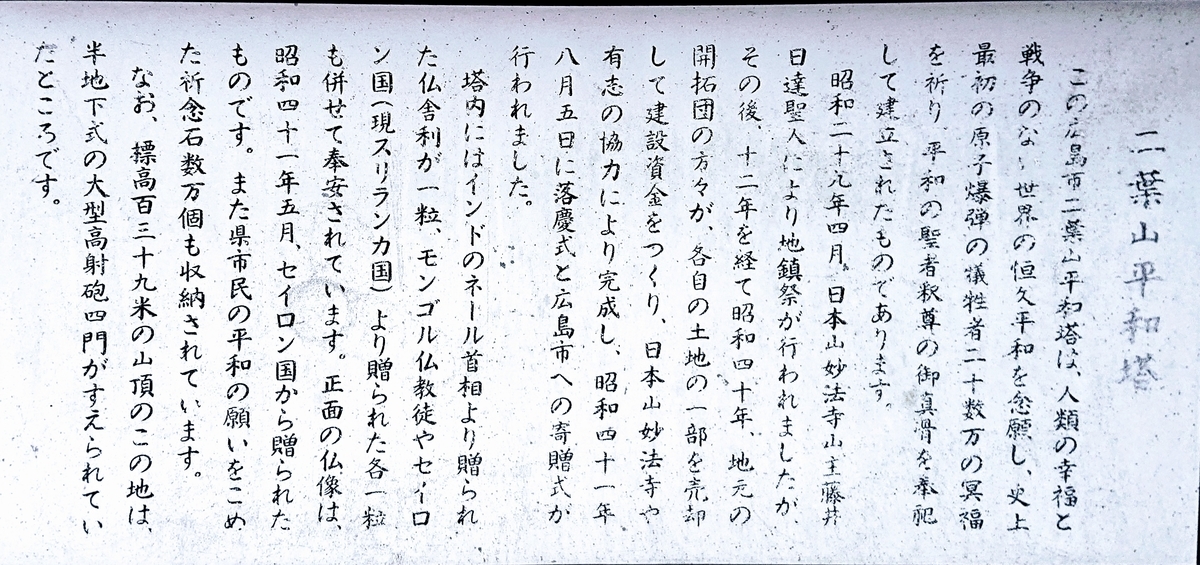 二葉山平和塔
この広島市二葉山平和塔は、人類の幸福と
戦争のない世界の恒久平和を念願し、史上
最初の原子爆弾の犠牲者二十数万の冥福
を祈り、平和の聖者釈尊の御真骨を奉祀
して建立されたものであります。
昭和二十九年四月、日本山妙法寺山主藤井
日達聖人により地鎮祭が行われましたが、
その後、十二年を経て昭和四十年、地元の
開拓団の方々が、各自の土地の一部を売却
して建設資金をつくり、日本山妙法寺や
有志の協力により完成し、昭和四十一年
八月五日に落慶式と広島市への寄贈式が
行われました。
塔内にはインドのネール首相より贈られ
た仏舎利が一粒、モンゴル仏教徒やセイロ
ン国(現スリランカ国)より贈られた各一粒
も併せて奉安されています。正面の仏像は、
昭和四十一年五月、セイロン国から贈られた
ものです。また県市民の平和の願いをこめ
た祈念石数万個も収納されています。
なお、標高百三十九米の山頂のこの地は、
半地下式の大型高射砲四門がすえられてい
たところです。